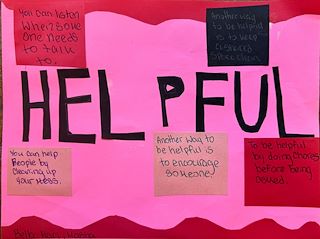 You can listen
when some
one needs
to talk
to.
Another way
to be helpful
is to keep
HELPFUL
You can help
People by
cleaning up
your mess.
Another way to
be helpful is
to encourage
someone.
To be helpful
by doing chores
before being
asked.